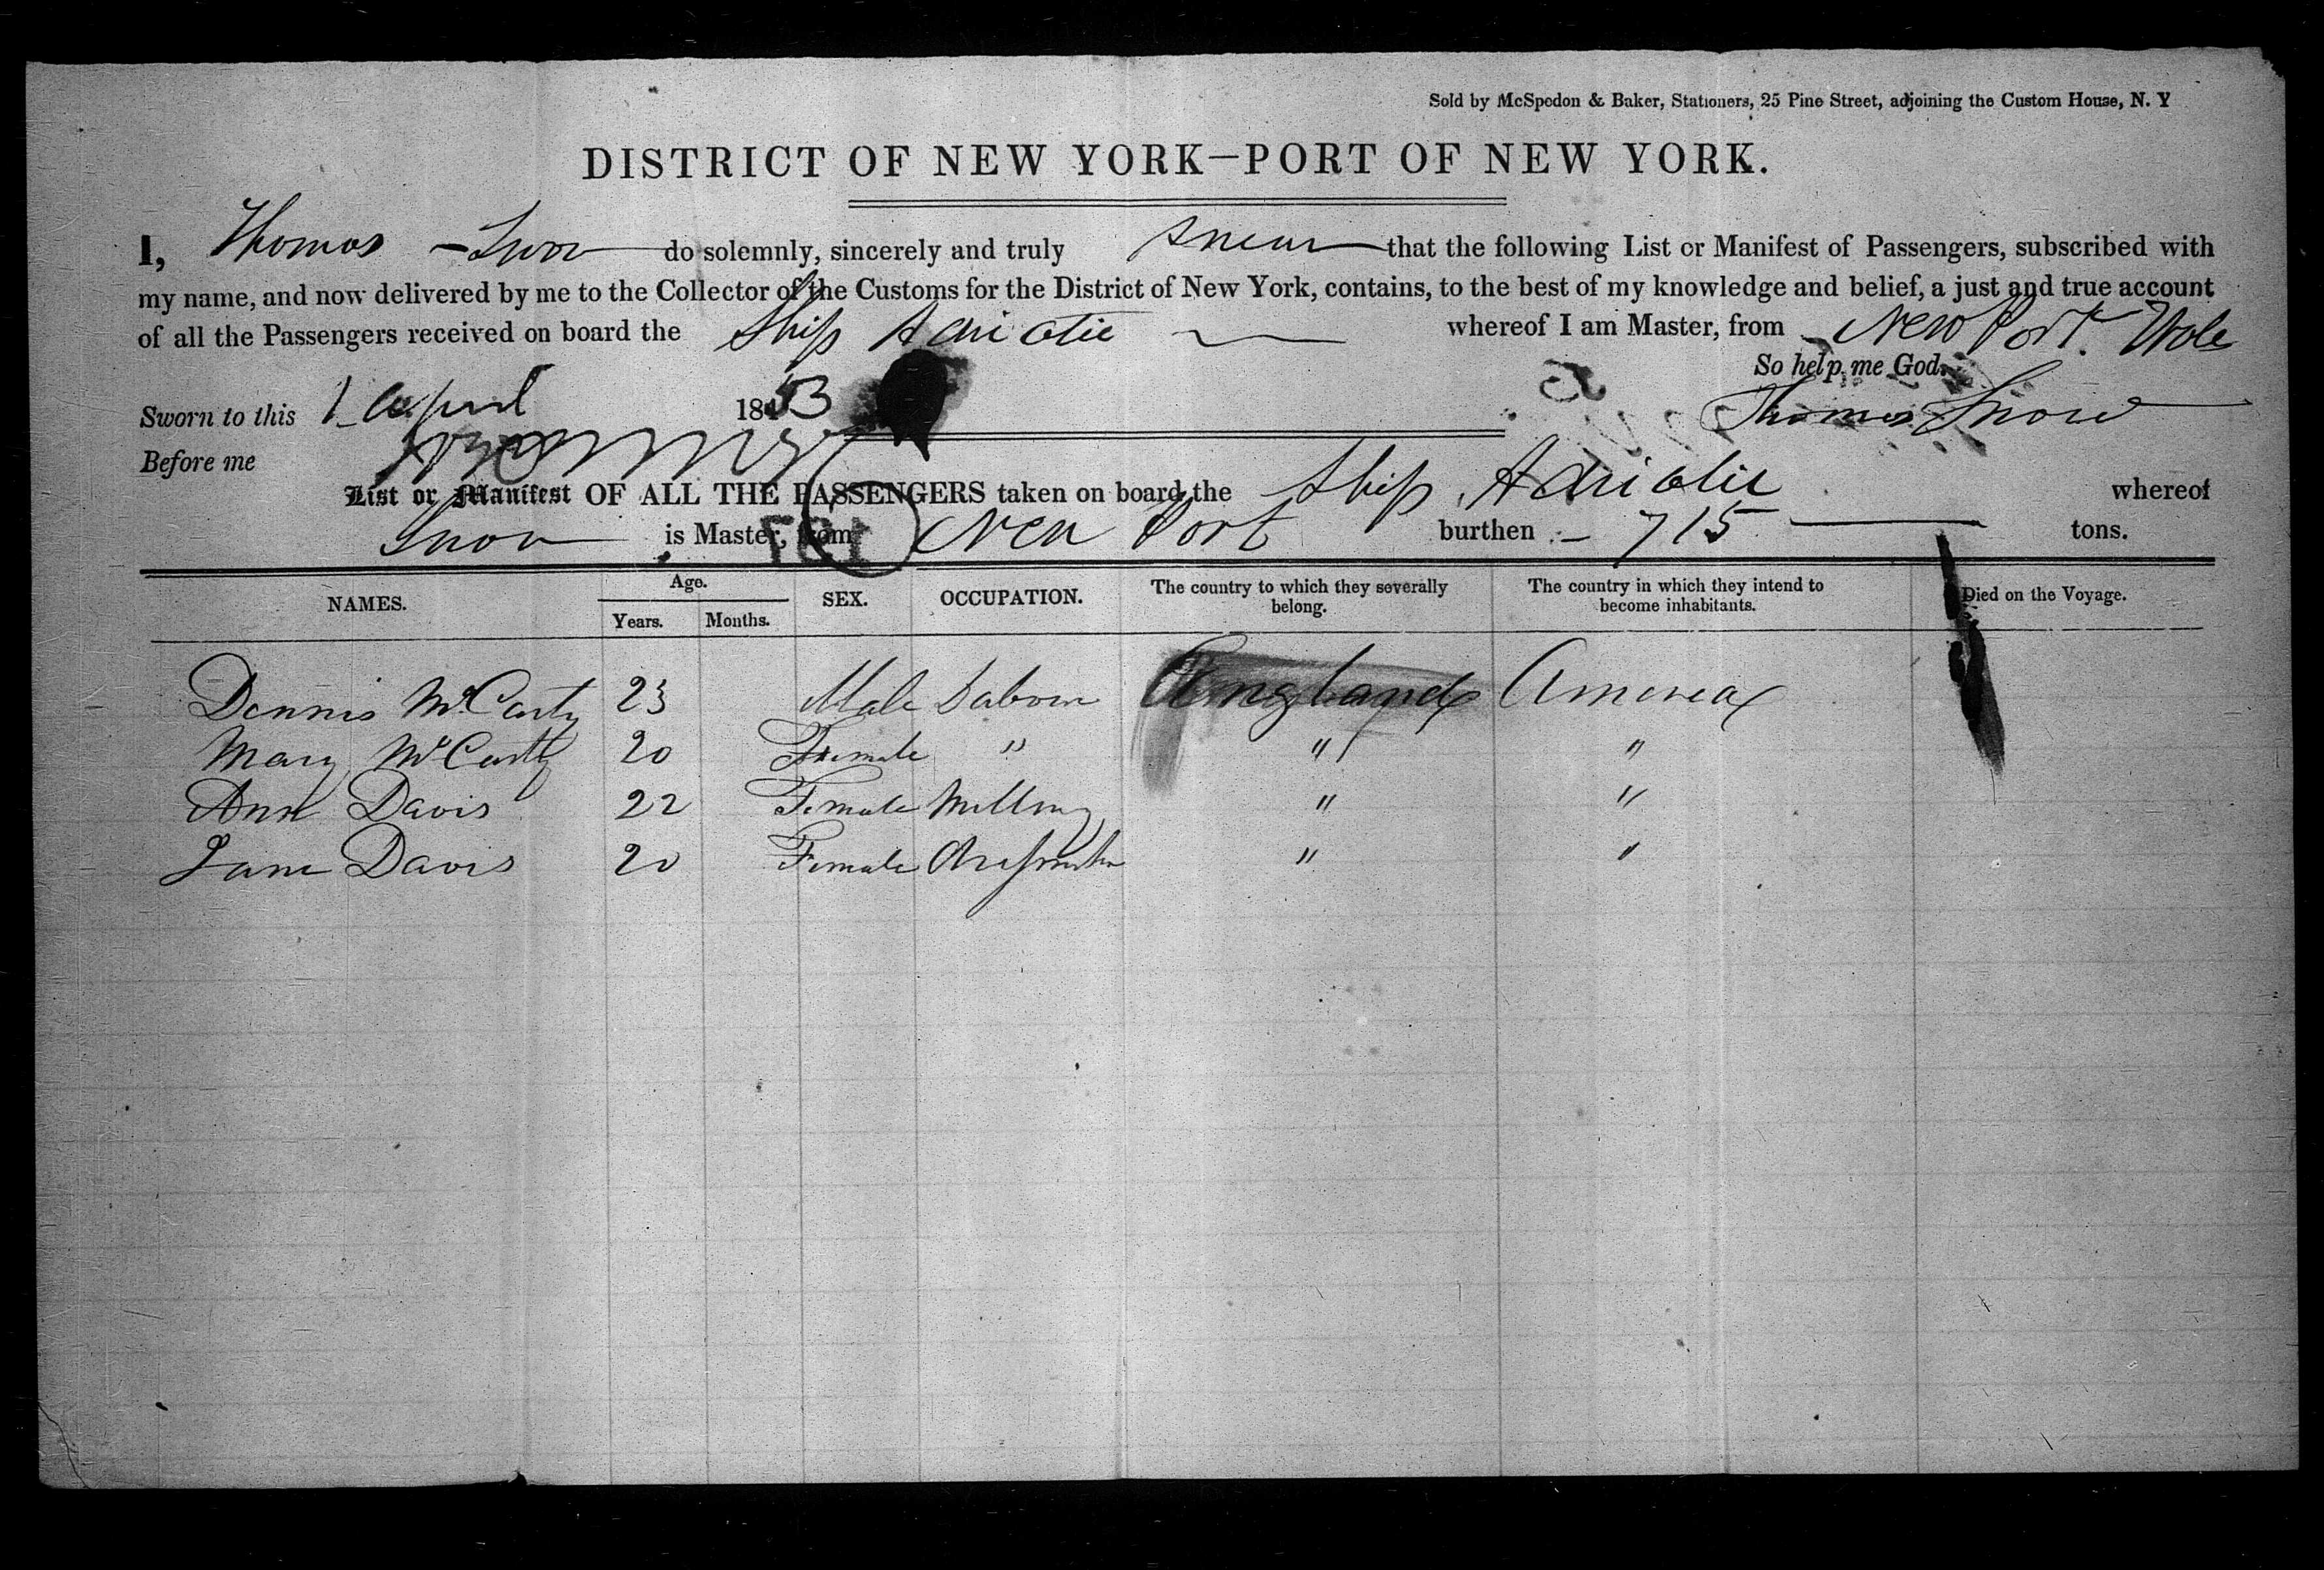 Sold by McSpedon & Baker, Stationers, 25 Pine Street, adjoining the Custom House, N. Y
DISTRICT OF NEW YORK—PORT OF NEW YORK.
I, Thomas Snow do solemnly, sincerely and truly swear that the following List or Manifest of Passengers, subscribed with
my name, and now delivered by me to the Collector of the Customs for the District of New York, contains, to the best of my knowledge and belief, a just and true account
of all the Passengers received on board the Ship Adriatic whereof I am Master, from New Port Wale
So help me God.
Sworn to this 1 April 1853 Thomas Snow
Before me
List or Manifest OF ALL THE PASSENGERS taken on board the Ship Adriatic whereof
Snow is Master, from New Port burthen 715 tons.
NAMES. Age. Years. Months. SEX. OCCUPATION. The country to which they severally belong. The country in which they intend to become inhabitants. Died on the Voyage.
Dennis McCarty 23 Male Labour England America
Mary McCarty 20 Female " " "
Ann Davis 22 Female " "
Jane Davis 20 Female " "